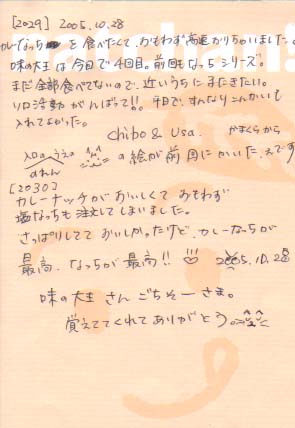 [2029] 2005.10.28
カレーなっちを食べたくて、おもわず高速かりちゃいました。
味の大王は今日で4回目。前回もなっちシリーズ。
まだ全部食べてないので、近いうちにまたきたい。
ソロ活動がんばって!! 平日で、すんなりこんかいも
入れてよかった。
chibo & Usa. かまくらから
入口のうえの
の絵が前回にかいた、えです
[2030]
カレーナッチがおいしくておもわず
塩なっちも注文してしまいました。
さっぱりしてておいしかったけど、カレーなっちが
最高、なっちが最高!! 2005.10.28
味の大王さんごちそーさま。
覚えててくれてありがとう。